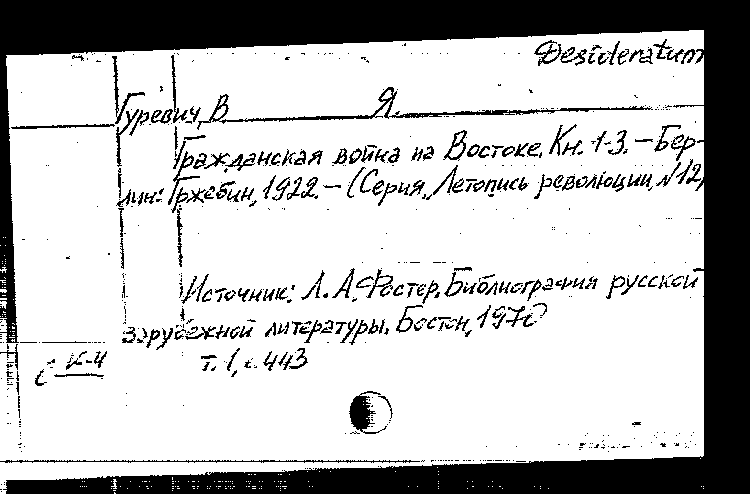 Desideratum
Гуревич, В. Я.
Гражданская война на Востоке. Кн. 1-3. — Бер-
лин: Гржебин, 1922. — (Серия „Летопись революции, №12
Источник: Л. А. Фостер. Библиография русской
зарубежной литературы. Бостон, 1970
т. 1, с. 443
К-4